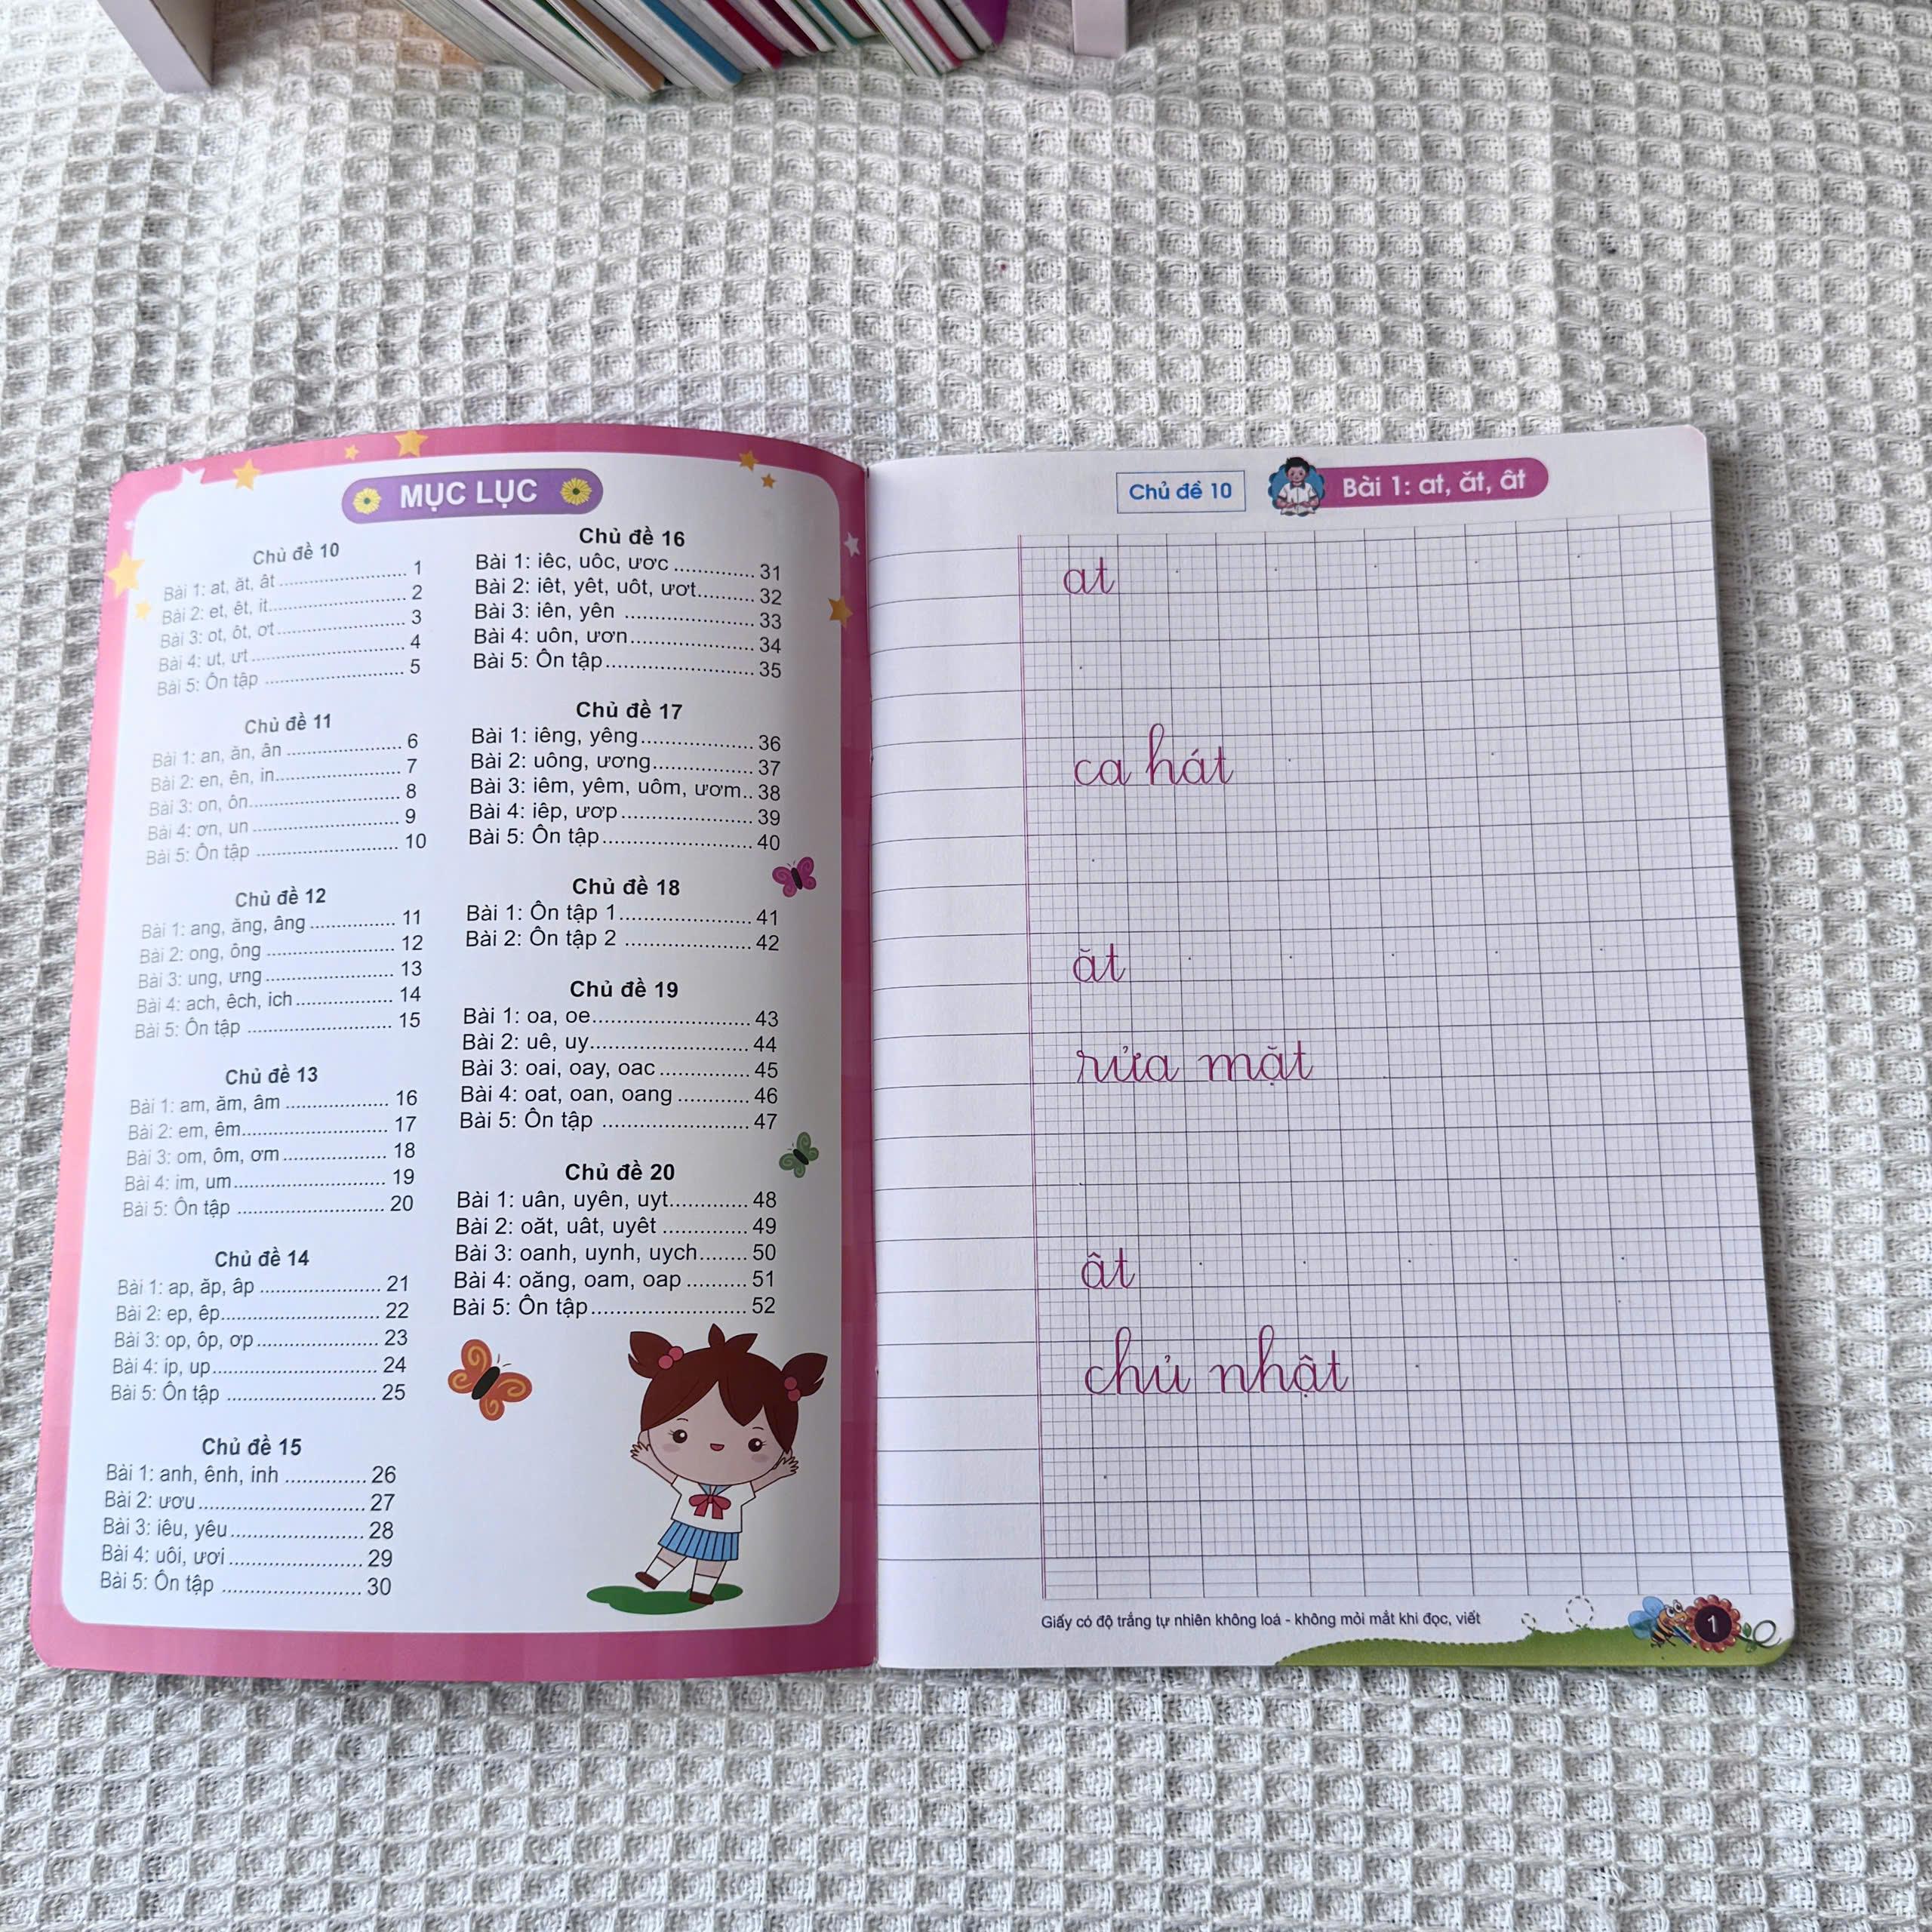 MỤC LỤC
Chủ đề 10
Bài 1: at, ăt, ât ........................ 1
Bài 2: et, êt, it......................... 2
Bài 3: ot, ôt, ơt........................ 3
Bài 4: ut, ưt ............................ 4
Bài 5: Ôn tập ......................... 5
Chủ đề 11
Bài 1: an, ăn, ân .................... 6
Bài 2: en, ên, in...................... 7
Bài 3: on, ôn.......................... 8
Bài 4: ơn, un ......................... 9
Bài 5: Ôn tập ........................ 10
Chủ đề 12
Bài 1: ang, ăng, âng .............. 11
Bài 2: ong, ông ..................... 12
Bài 3: ung, ưng ..................... 13
Bài 4: ach, êch, ich ................ 14
Bài 5: Ôn tập ........................ 15
Chủ đề 13
Bài 1: am, ăm, âm ................. 16
Bài 2: em, êm........................ 17
Bài 3: om, ôm, ơm ................. 18
Bài 4: im, um......................... 19
Bài 5: Ôn tập ........................ 20
Chủ đề 14
Bài 1: ap, ăp, âp .................... 21
Bài 2: ep, êp.......................... 22
Bài 3: op, ôp, ơp .................... 23
Bài 4: ip, up........................... 24
Bài 5: Ôn tập ........................ 25
Chủ đề 15
Bài 1: anh, ênh, inh .............. 26
Bài 2: ươu ........................... 27
Bài 3: iêu, yêu ...................... 28
Bài 4: uôi, ươi ...................... 29
Bài 5: Ôn tập ....................... 30
Chủ đề 16
Bài 1: iêc, uôc, ươc .............. 31
Bài 2: iêt, yêt, uôt, ươt.......... 32
Bài 3: iên, yên ..................... 33
Bài 4: uôn, ươn.................... 34
Bài 5: Ôn tập........................ 35
Chủ đề 17
Bài 1: iêng, yêng................... 36
Bài 2: uông, ương................. 37
Bài 3: iêm, yêm, uôm, ươm.. 38
Bài 4: iêp, ươp ..................... 39
Bài 5: Ôn tập........................ 40
Chủ đề 18
Bài 1: Ôn tập 1..................... 41
Bài 2: Ôn tập 2 .................... 42
Chủ đề 19
Bài 1: oa, oe......................... 43
Bài 2: uê, uy......................... 44
Bài 3: oai, oay, oac .............. 45
Bài 4: oat, oan, oang ............ 46
Bài 5: Ôn tập ....................... 47
Chủ đề 20
Bài 1: uân, uyên, uyt............. 48
Bài 2: oăt, uât, uyêt .............. 49
Bài 3: oanh, uynh, uych........ 50
Bài 4: oăng, oam, oap .......... 51
Bài 5: Ôn tập........................ 52
Chủ đề 10
Bài 1: at, ăt, ât
at
ca hát
ăt
rửa mặt
ât
chủ nhật
Giấy có độ trắng tự nhiên không loá - không mỏi mắt khi đọc, viết
1